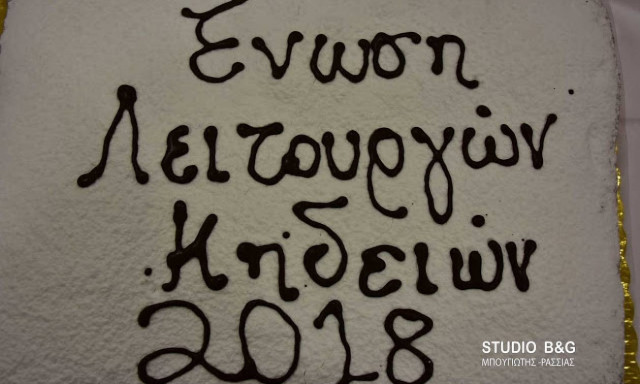 Ένωση
Λειτουργών
Κηδειών
2018
STUDIO B&G
ΜΠΟΥΓΙΩΤΗΣ -ΡΑΣΣΙΑΣ